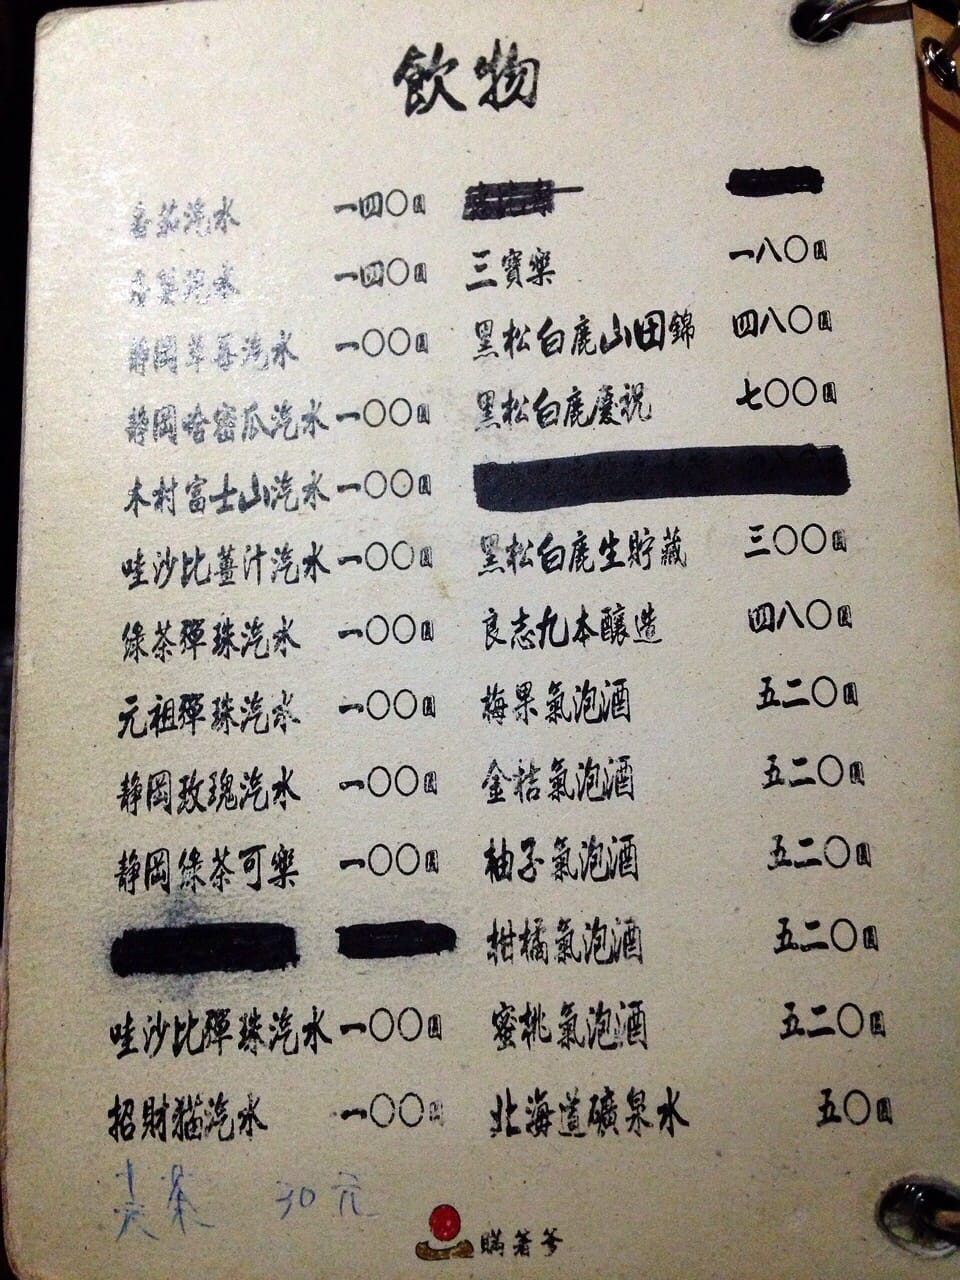 飲物
番茄汽水 一四〇圓
香蕉汽水 一四〇圓
靜岡草莓汽水 一〇〇圓
靜岡哈密瓜汽水 一〇〇圓
木村富士山汽水 一〇〇圓
哇沙比薑汁汽水 一〇〇圓
綠茶彈珠汽水 一〇〇圓
元祖彈珠汽水 一〇〇圓
靜岡玫瑰汽水 一〇〇圓
靜岡綠茶可樂 一〇〇圓
哇沙比彈珠汽水 一〇〇圓
招財貓汽水 一〇〇圓
三寶樂 一八〇圓
黑松白鹿山田錦 四八〇圓
黑松白鹿慶祝 七〇〇圓
黑松白鹿生貯藏 三〇〇圓
良志久本釀造 四八〇圓
梅果氣泡酒 五二〇圓
金桔氣泡酒 五二〇圓
柚子氣泡酒 五二〇圓
柑橘氣泡酒 五二〇圓
蜜桃氣泡酒 五二〇圓
北海道礦泉水 五〇圓
茶 30元
瞞著爹